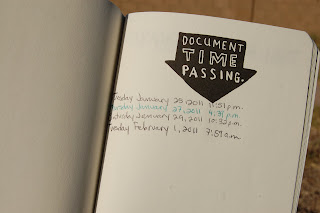 DOCUMENT
TIME
PASSING.
Tuesday January 25, 2011 11:51 p.m.
Thursday January 27, 2011 4:31 pm
Saturday January 29, 2011 10:32 p.m.
Tuesday February 1, 2011 7:59 a.m.